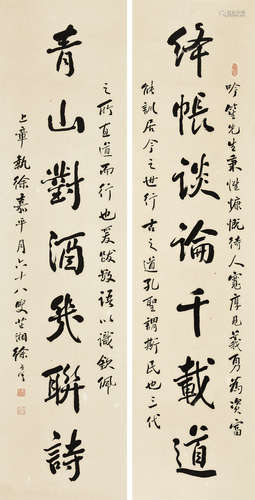 絳帳談論千載道
吟笙先生秉性慷慨待人寬厚見義勇為資富
能訓居今之世行古之道孔聖謂斯民也三代
青山對酒幾聯詩
之所直道而行也爰跋數語以識欽佩
上章執徐嘉平月六十八叟芷湘徐